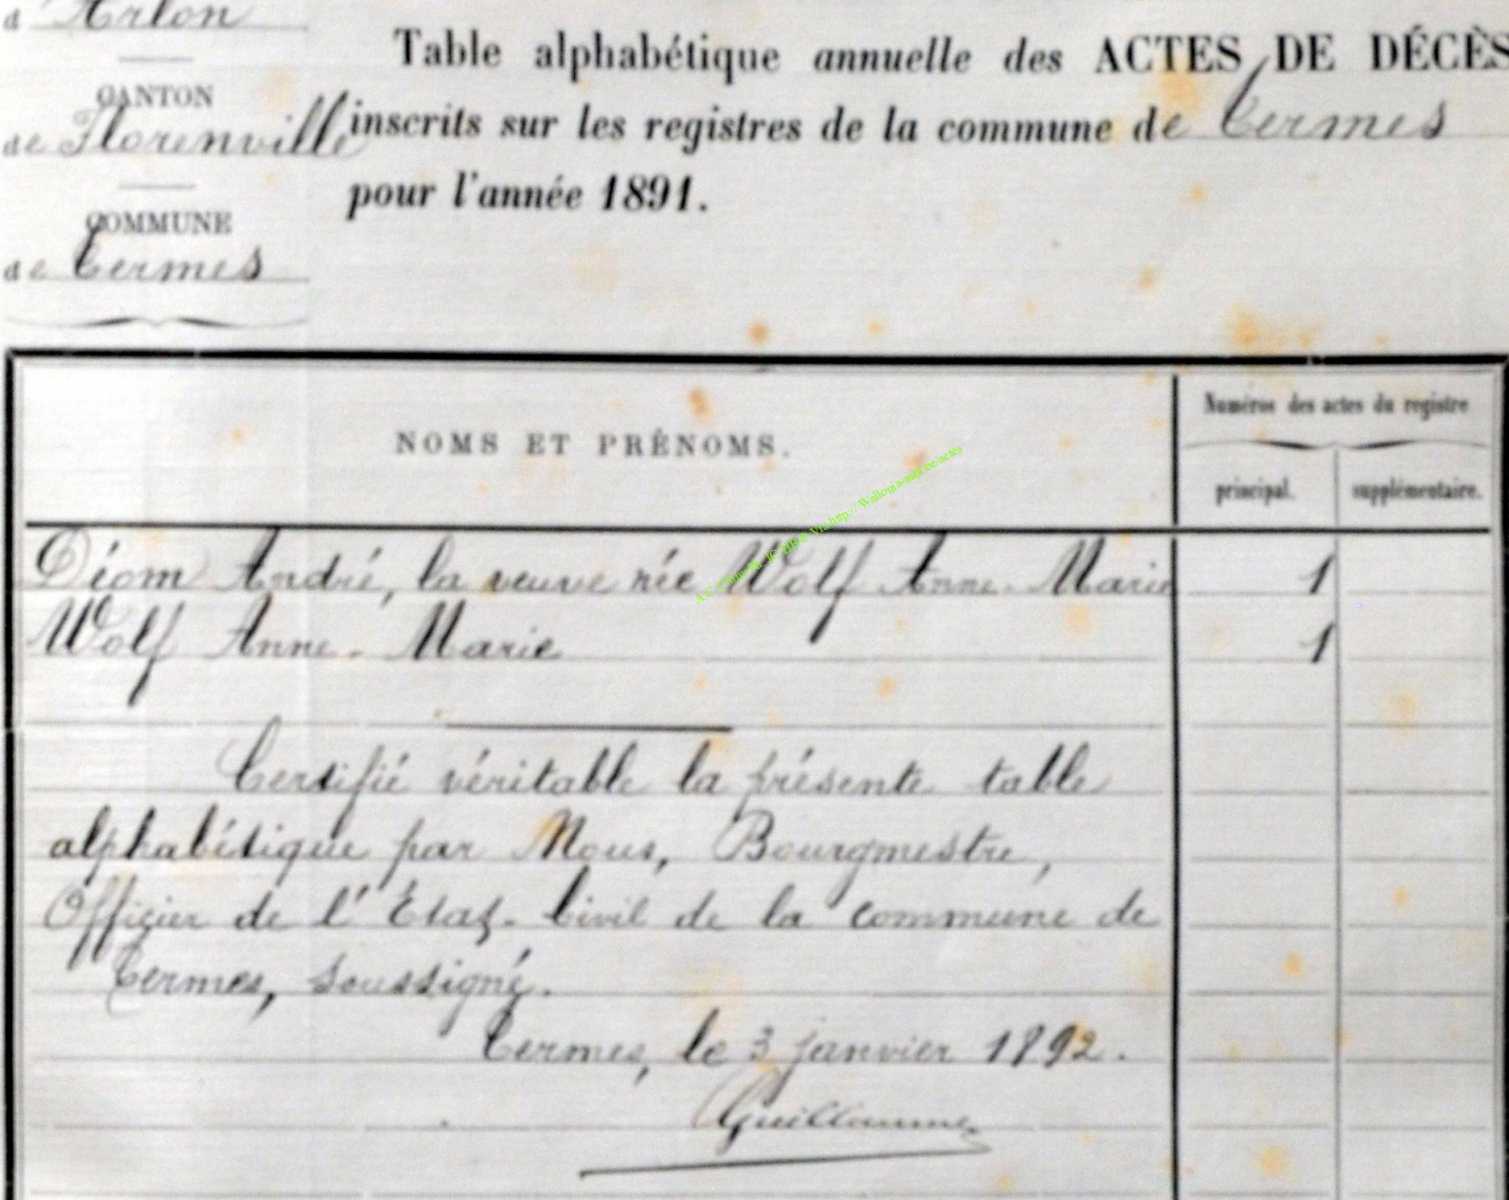 d'Arlon
CANTON
de Florenville
COMMUNE
de Termes
Table alphabétique annuelle des ACTES DE DÉCÈS
inscrits sur les registres de la commune de Termes
pour l'année 1891.
NOMS ET PRÉNOMS.
Numéros des actes du registre
principal.
supplémentaire.
Diom André, la veuve née Wolf Anne-Marie 1
Wolf Anne-Marie 1
Certifié véritable la présente table
alphabétique par Nous, Bourgmestre,
Officier de l'État-Civil de la commune de
Termes, soussigné.
Termes, le 3 janvier 1892.
Guillaume